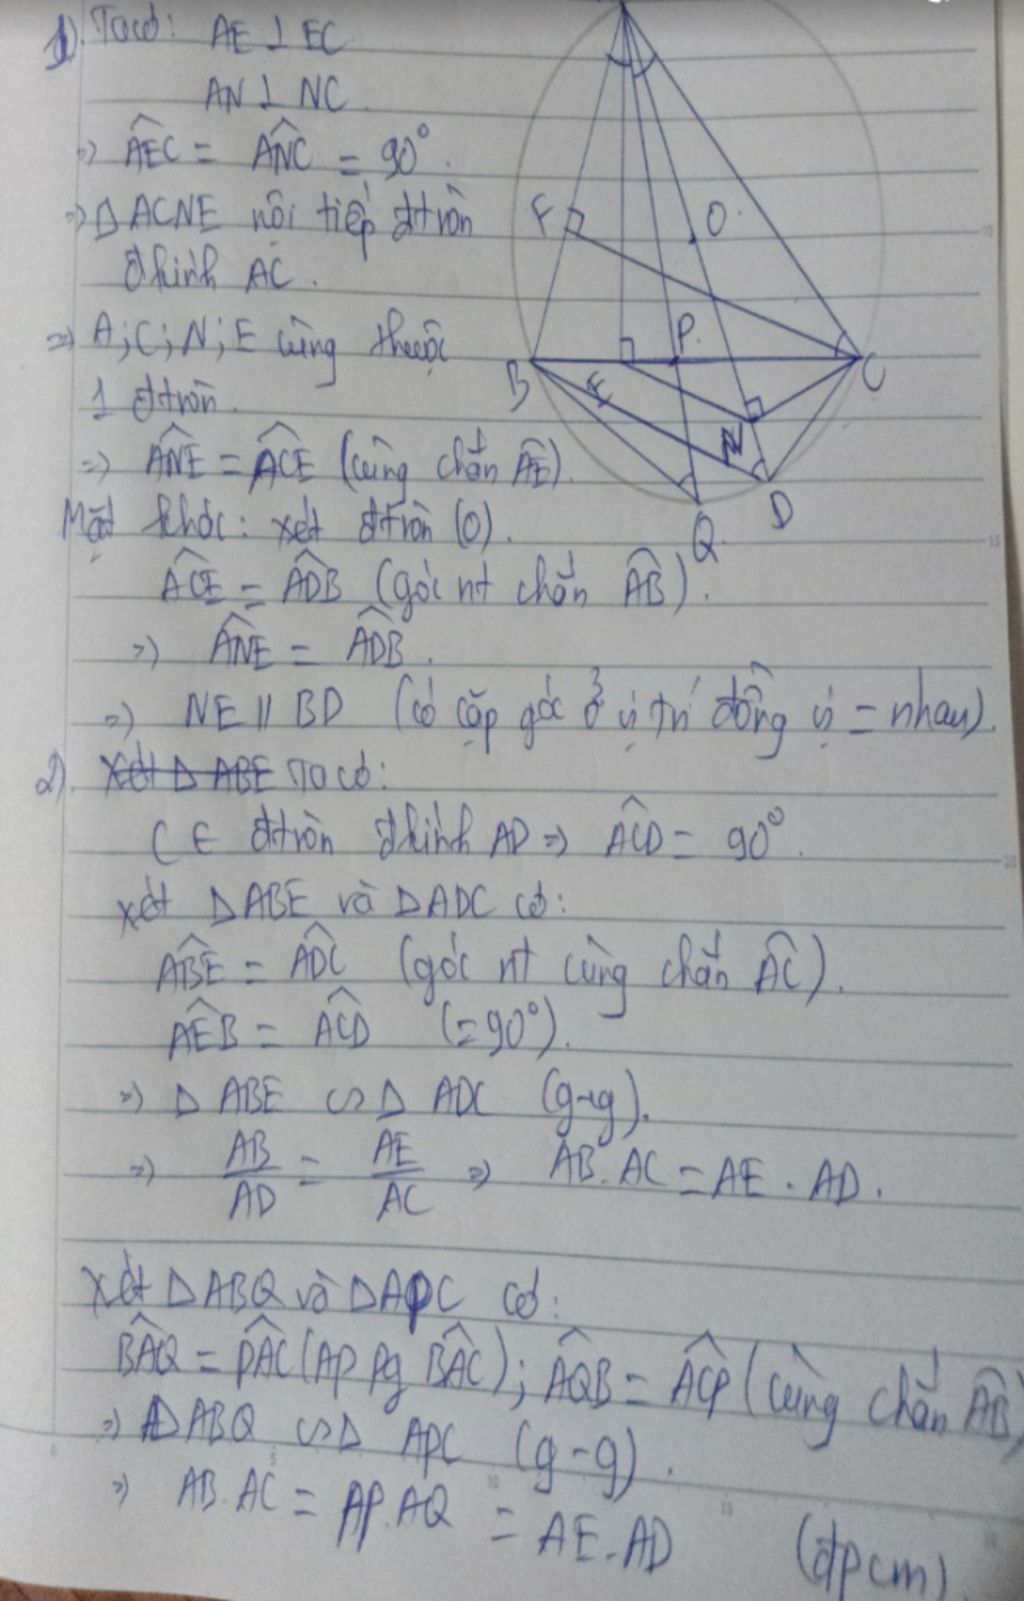 1). Ta có: AE ⊥ EC
AN ⊥ NC
=> \widehat{AEC} = \widehat{ANC} = 90°.
=> Δ ACNE nội tiếp đtròn
đkính AC.
=> A;C;N;E cùng thuộc
1 đtròn.
=> \widehat{ANE} = \widehat{ACE} (cùng chắn \widehat{AE}).
Mặt khác: xét đtròn (O).
\widehat{ACE} = \widehat{ADB} (góc nt chắn \widehat{AB}).
=> \widehat{ANE} = \widehat{ADB}.
=> NE // BD (có cặp góc ở vị trí đồng vị = nhau).
2). Xét Δ ABE Ta có:
C ∈ đtròn đkính AD => \widehat{ACD} = 90°.
xét Δ ABE và Δ ADC có:
\widehat{ABE} = \widehat{ADC} (góc nt cùng chắn \widehat{AC}).
\widehat{AEB} = \widehat{ACD} (=90°).
=> Δ ABE ∽ Δ ADC (g-g).
=> AB/AD = AE/AC => AB.AC = AE.AD.
Xét Δ ABQ và Δ APC có:
\widehat{BAQ} = \widehat{PAC} (AP pg \widehat{BAC}); \widehat{AQB} = \widehat{ACP} (cùng chắn \widehat{AB})
=> Δ ABQ ∽ Δ APC (g-g).
=> AB.AC = AP.AQ = AE.AD (đpcm)
F
O
P
B
E
C
N
Q
D